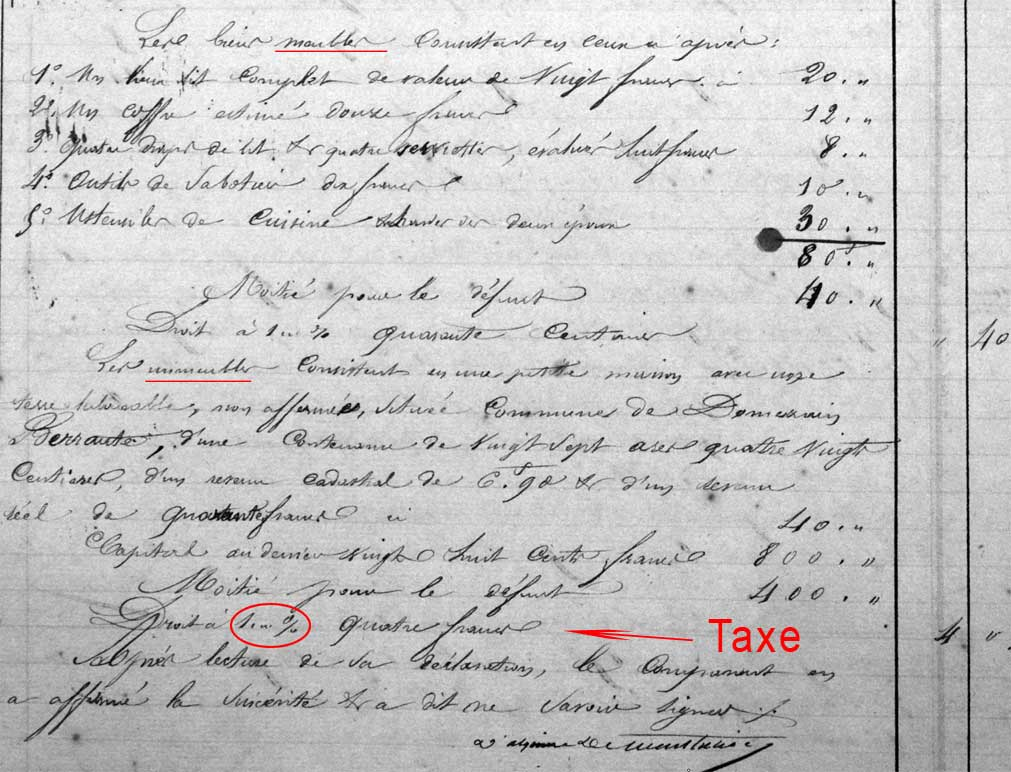 Les biens meubles Consistent en ceux ci après:
1º. Un bien lit Complet de valeur de Vingt francs. à 20. "
2º. Un coffre estimé douze francs 12. "
3º. Quatre draps de lit & quatre serviettes, évalués huit francs 8. "
4º. Outils de Sabotier dix francs 10. "
5º. Ustensiles de Cuisine trente 30. "
80. "
Moitié pour le défunt 40. "
Droit à 1 % quarante Centimes " 40
Les immeubles Consistent en une petite maison avec une
terre labourable, non affermée, située Commune de Domezain
Berraute, d'une Contenance de Vingt Sept ares quatre Vingt
Centiares, d'un revenu cadastral de 6.f 98 & d'un revenu
réel de quarante francs ci 40. "
Capital au denier Vingt huit Cents francs 800. "
Moitié pour le défunt 400. "
Droit à 1 % quatre francs Taxe 4 "
Après lecture de Sa déclaration, le Comparant en
a affirmé la Sincérité & a dit ne Savoir Signer